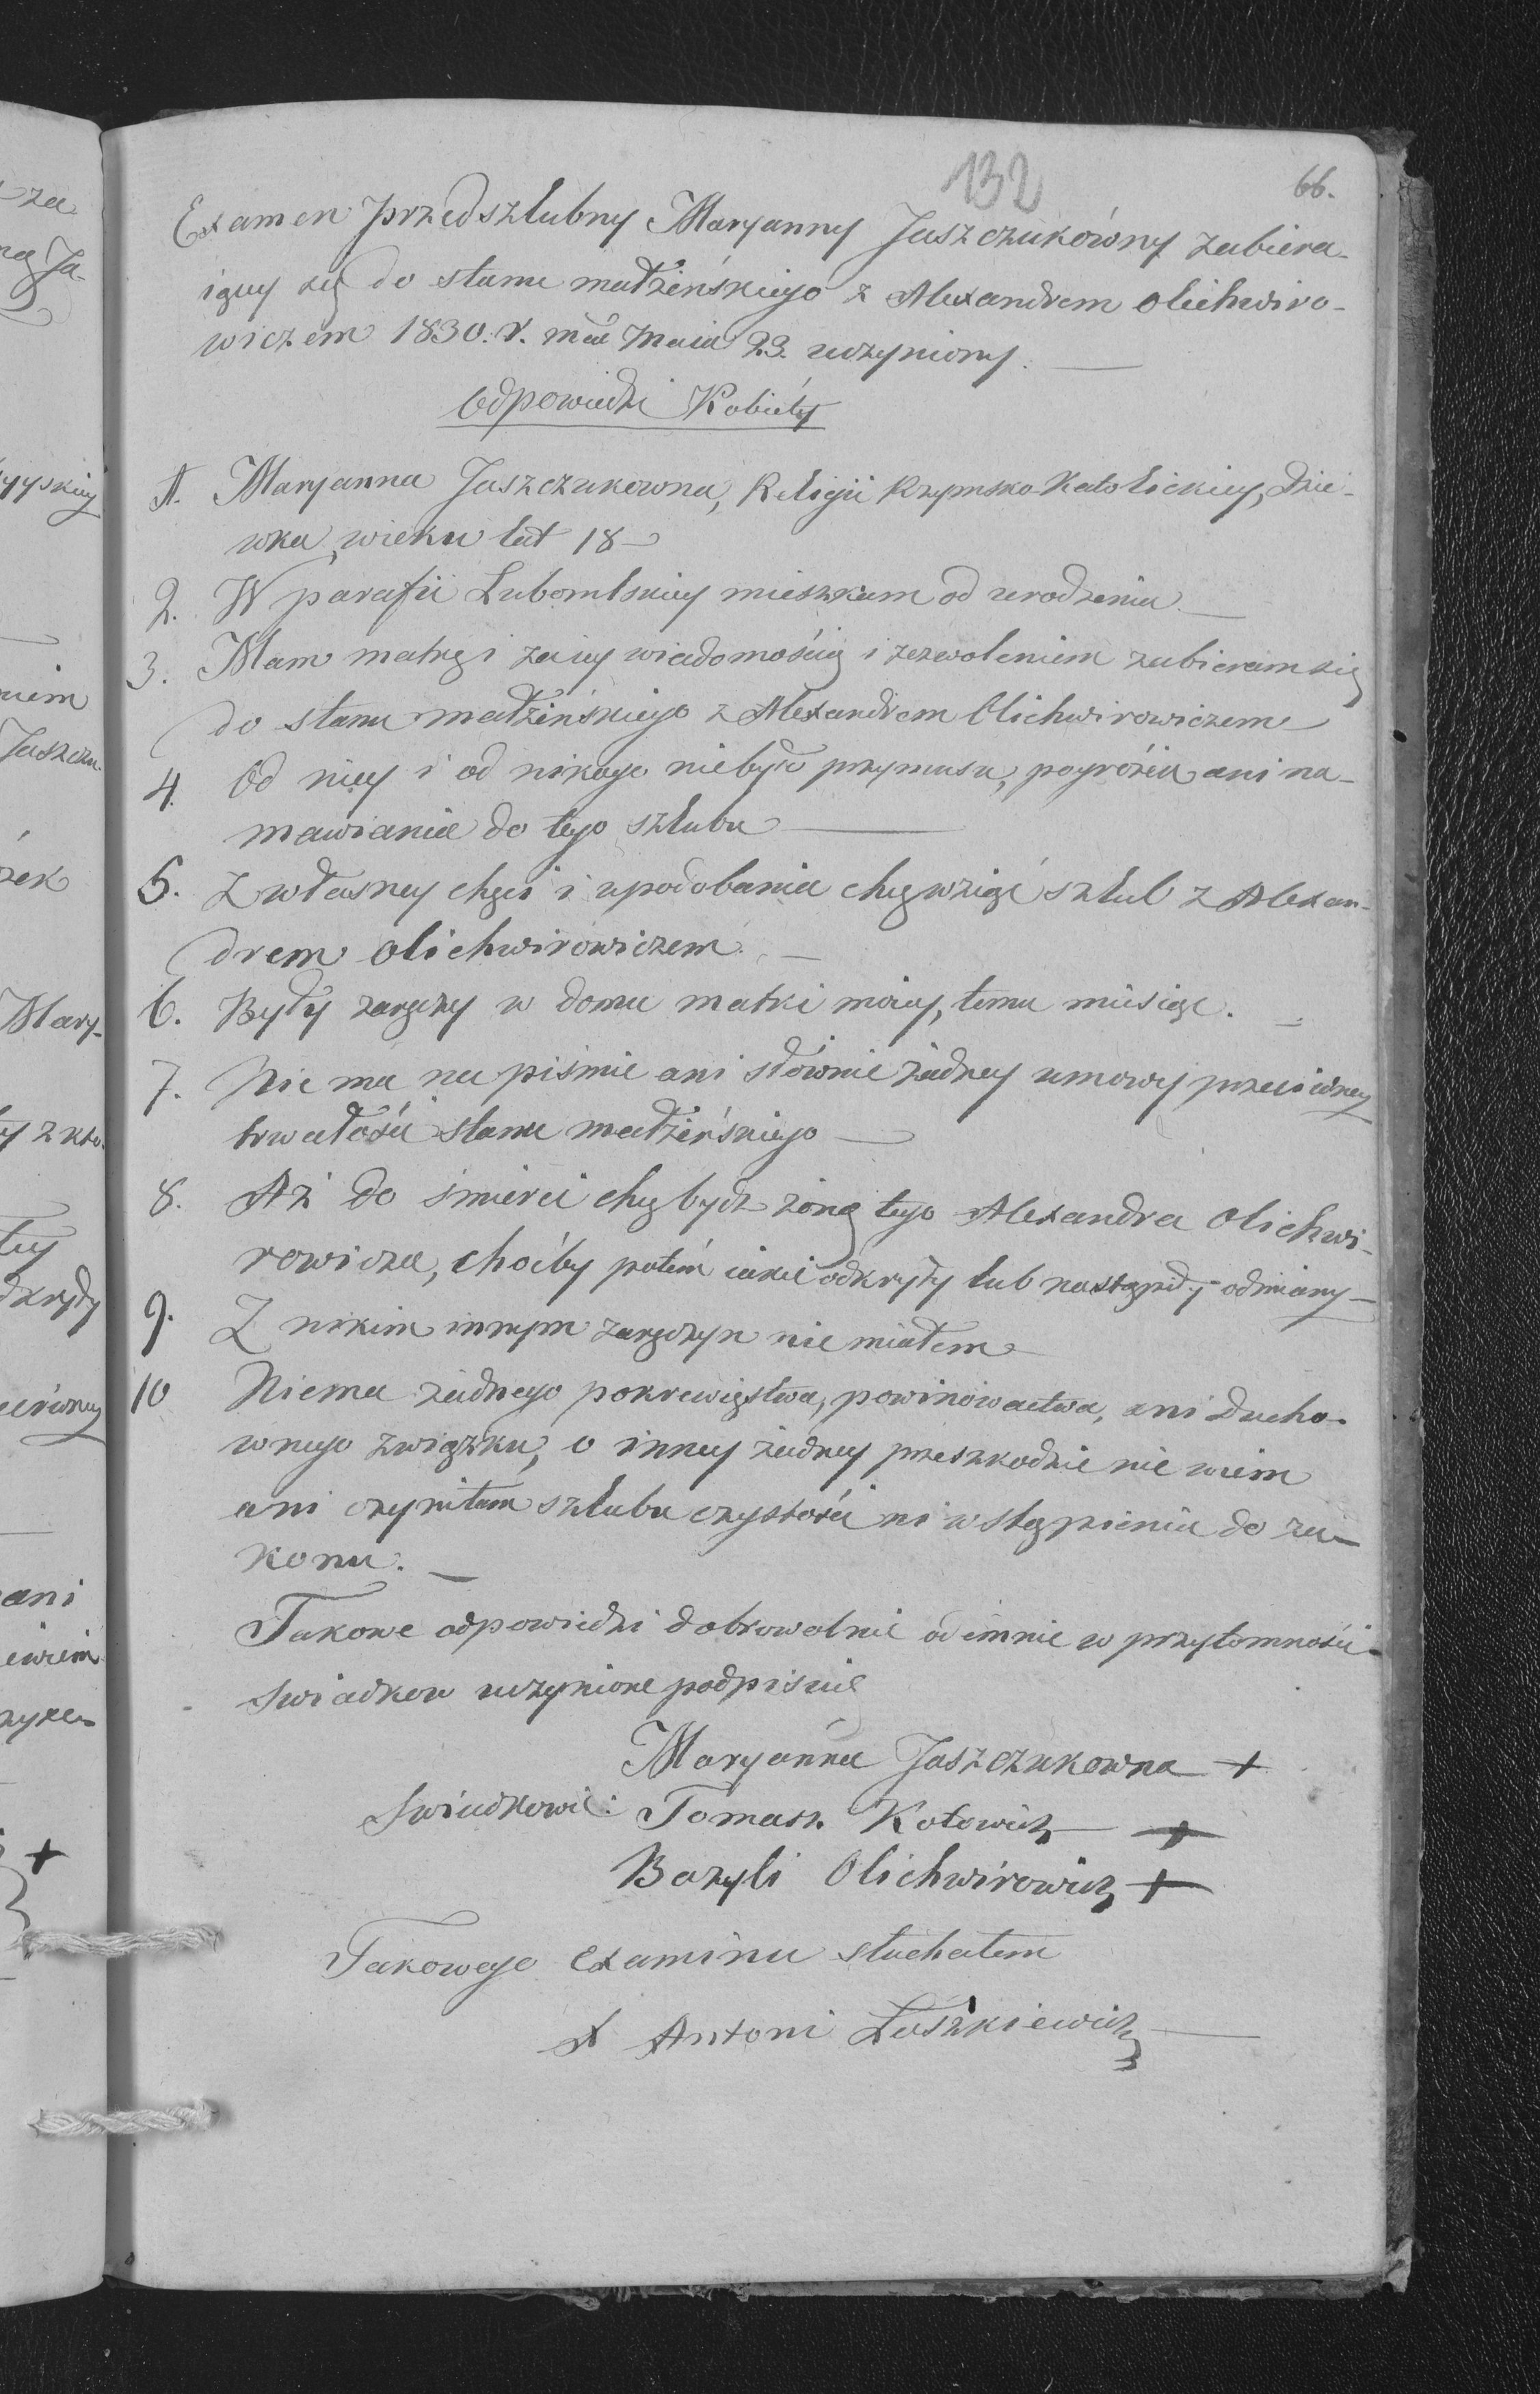 132
66.
Examen przedszlubny Maryanny Jaszczukówny zabiera-
iącey się do stanu małżeńskiego z Alexandrem Olichwiro-
wiczem 1830. r. mca Maia 23. uczyniony.
Odpowiedzi Kobiéty
1. Maryanna Jaszczukowna, Religii Rzymsko-Katolickiey, Dzie-
wka, wieku lat 18
2. W parafii Lubomlskiey mieszkam od urodzenia
3. Mam matkę i za iey wiadomością i zezwoleniem zabieram się
do stanu małżeńskiego z Alexandrem Olichwirowiczem
4. Od niey i od nikogo niebyło przymusu, pogróżek ani na-
mawiania do tego szlubu
5. Z własney chęci i upodobania chcę wziąć szlub z Alexan-
drem Olichwirowiczem.
6. Były zaręczyny w domu matki moiey, temu miesiąc.
7. Nie ma na piśmie ani słównie żadney umowy przeciwney
trwałości stanu małżeńskiego
8. Aż do śmierci chcę bydz żoną tego Alexandra Olichwi-
rowicza, choćby potém iakie odkryły lub nastąpiły odmiany
9. Z nikim innym zaręczyn nie miałem
10 Niema żadnego pokrewięstwa, powinówactwa, ani ducho-
wnego związku, o inney żadney przeszkodzie nie wiem
ani czyniłam szlubu czystości ni wstąpienia do za-
konu.
Takowe odpowiedzi dobrowolnie odemnie w przytomności
swiadkow uczynione podpisuię
Maryánna Jaszczukowna +
Swiadkowie: Tomasz Kotowicz +
Bazyli Olichwirowicz +
Takowego examinu słuchałem
X Antoni Łuszkiewicz